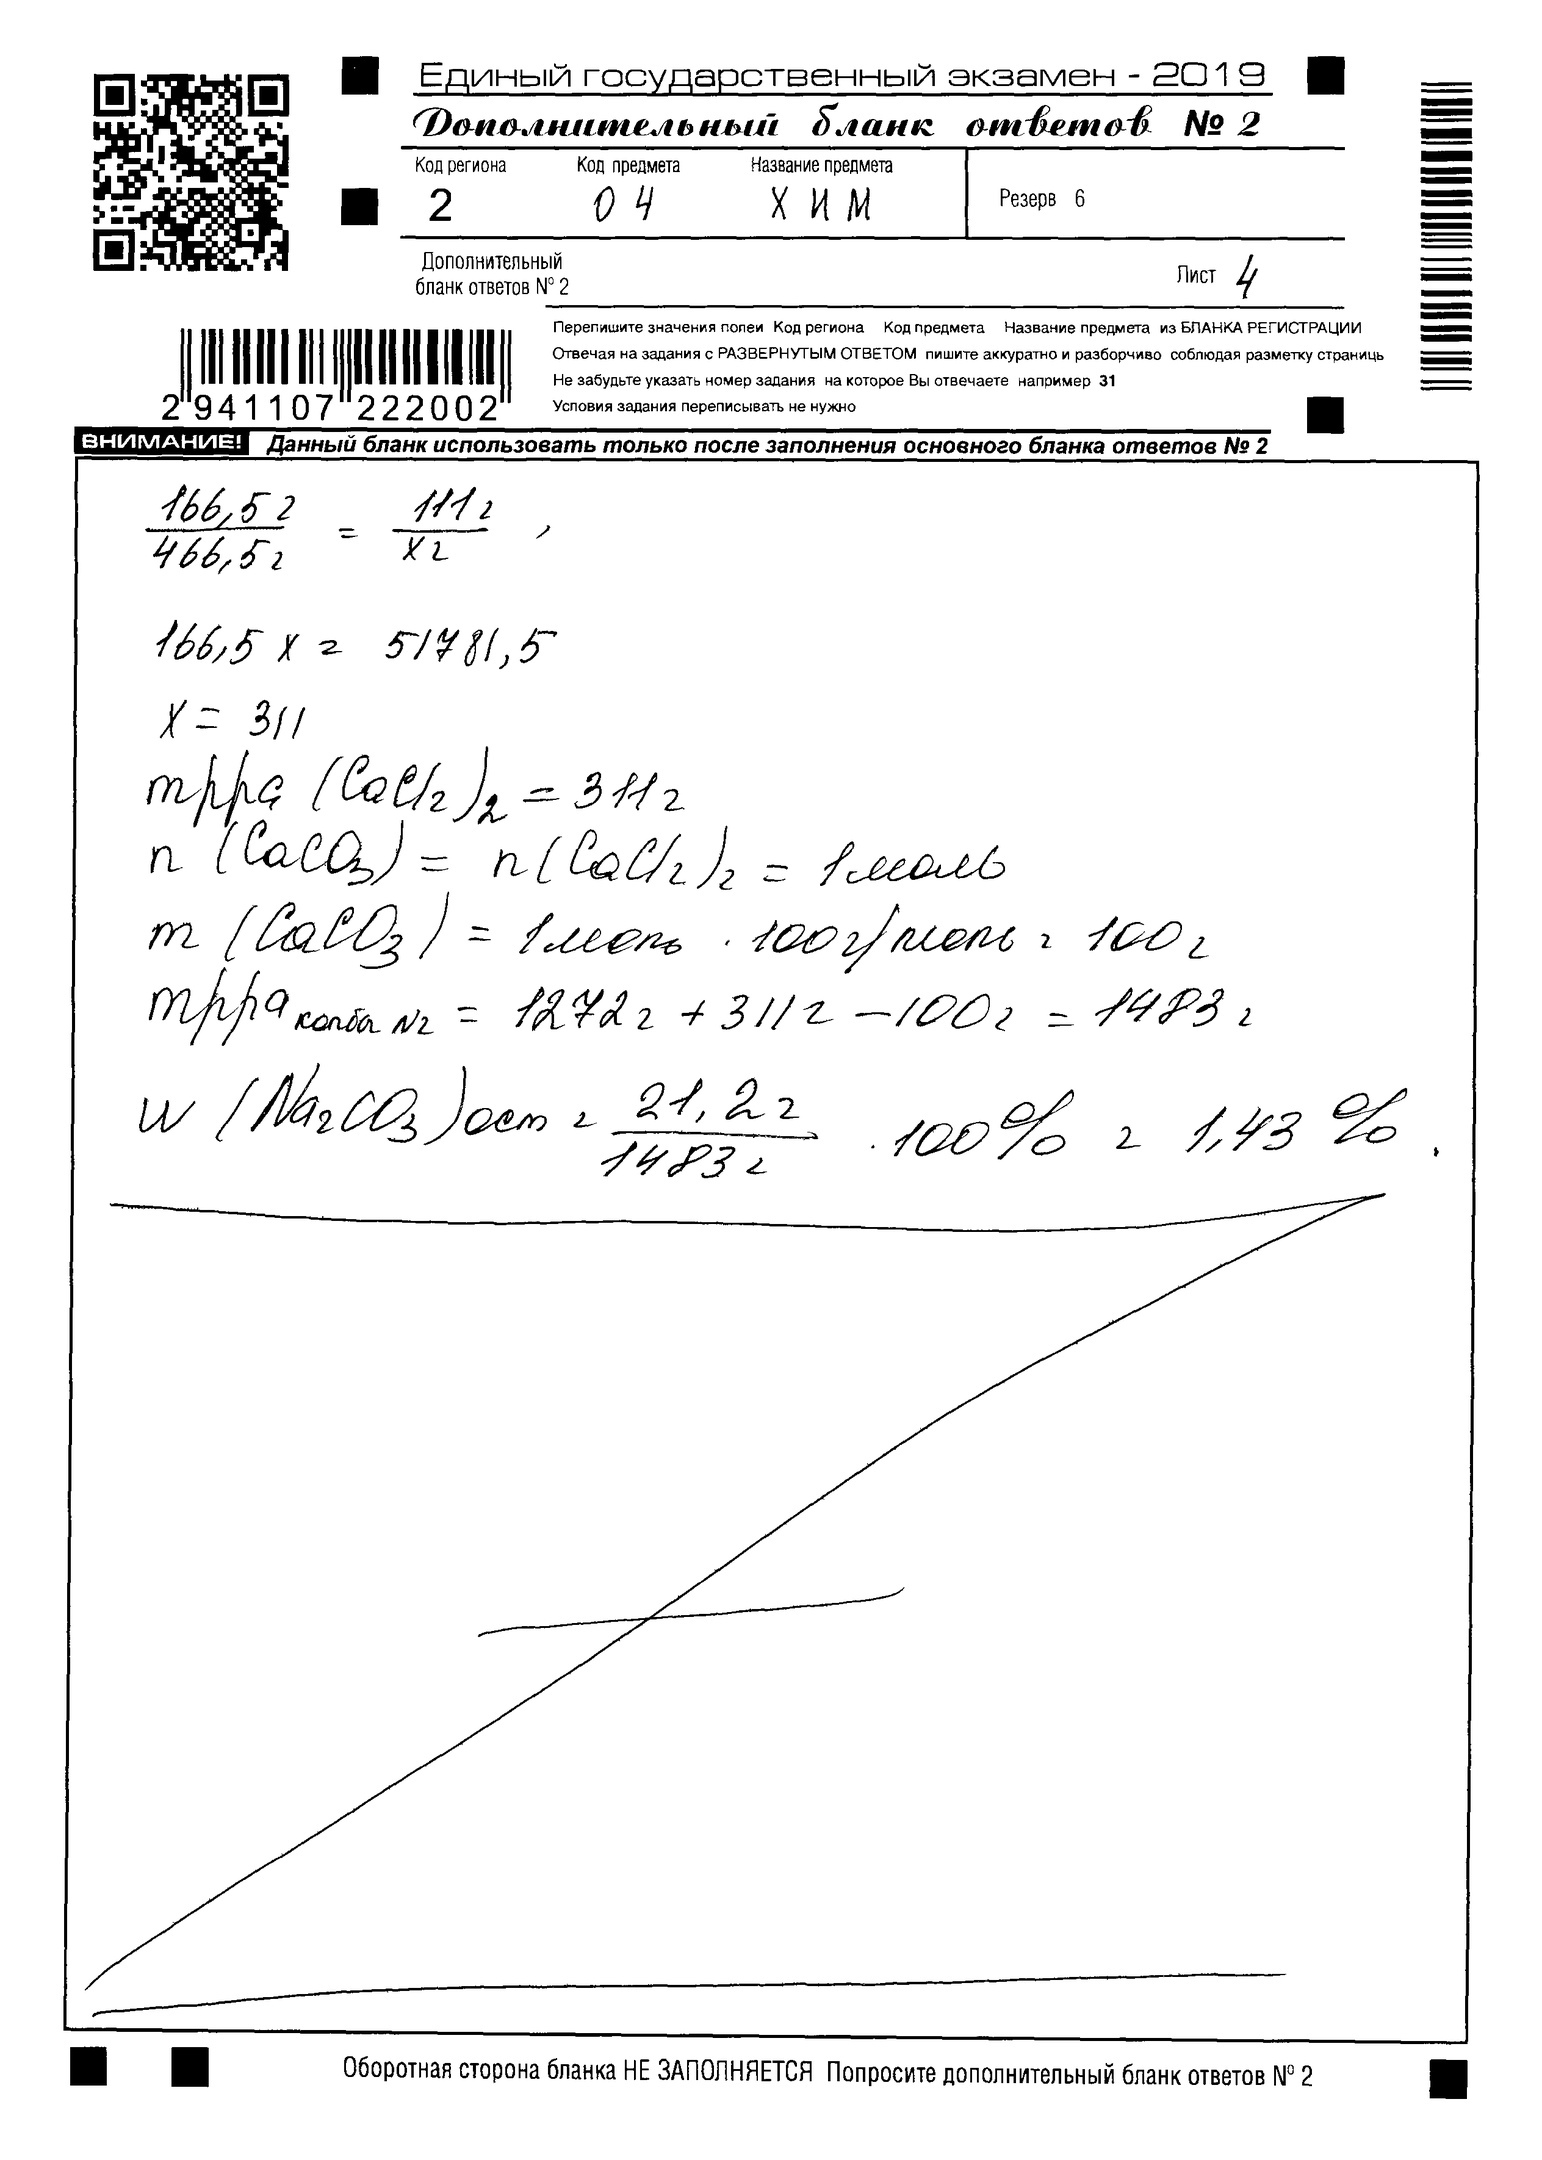 Единый государственный экзамен - 2019
Дополнительный бланк ответов № 2
Код региона Код предмета Название предмета
2 04 ХИМ Резерв 6
Дополнительный
бланк ответов № 2
Лист 4
Перепишите значения полей Код региона Код предмета Название предмета из БЛАНКА РЕГИСТРАЦИИ
Отвечая на задания с РАЗВЕРНУТЫМ ОТВЕТОМ пишите аккуратно и разборчиво соблюдая разметку страниць
Не забудьте указать номер задания на которое Вы отвечаете например 31
Условия задания переписывать не нужно
2 941107 222002
ВНИМАНИЕ! Данный бланк использовать только после заполнения основного бланка ответов № 2
166,5 г / 466,5 г = 111 г / x г ,
166,5 x = 51781,5
x = 311
mрра (CaCl2)2 = 311 г
n (CaCO3) = n (CaCl2)2 = 1 моль
m (CaCO3) = 1 моль · 100 г/моль = 100 г
mрра колба N2 = 1272 г + 311 г – 100 г = 1483 г
w (Na2CO3) ост = 21,2 г / 1483 г · 100 % = 1,43 % .
Оборотная сторона бланка НЕ ЗАПОЛНЯЕТСЯ Попросите дополнительный бланк ответов № 2